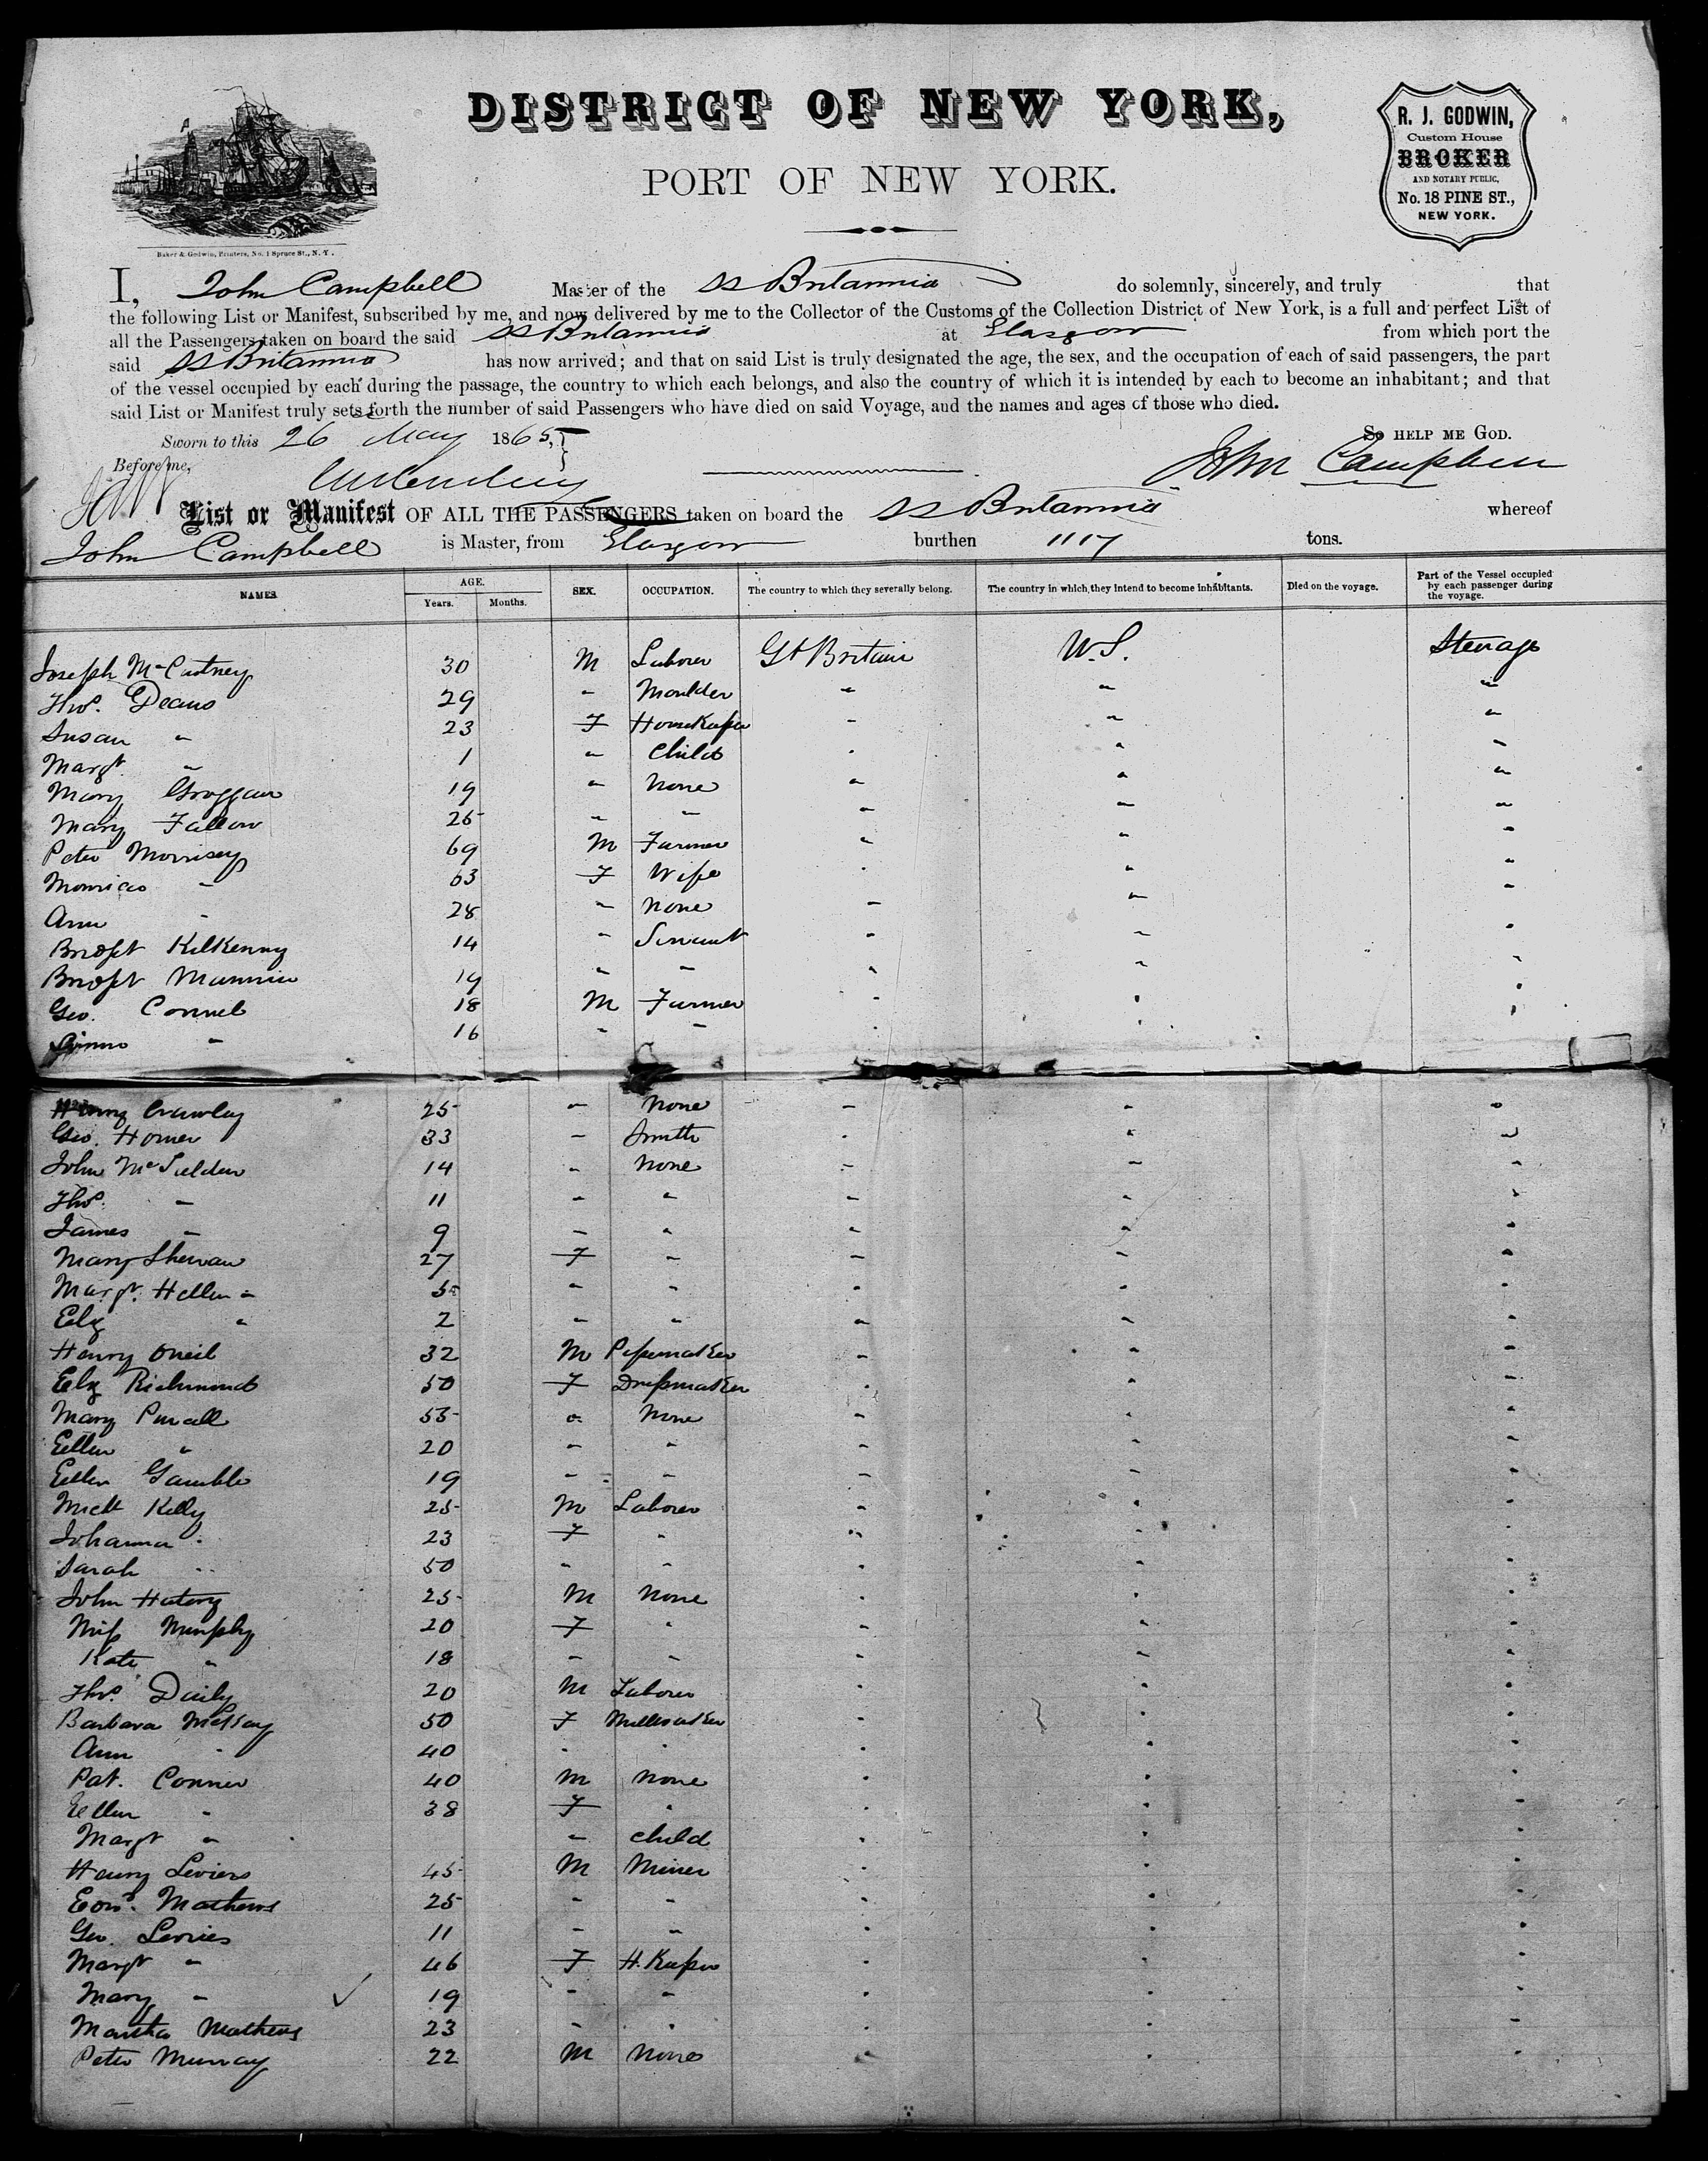 DISTRICT OF NEW YORK,
PORT OF NEW YORK.
R. J. GODWIN,
Custom House
BROKER
AND NOTARY PUBLIC,
No. 18 PINE ST.,
NEW YORK.
Baker & Godwin, Printers, No. 1 Spruce St., N. Y.
I, John Campbell Master of the SS Britannia do solemnly, sincerely, and truly that
the following List or Manifest, subscribed by me, and now delivered by me to the Collector of the Customs of the Collection District of New York, is a full and perfect List of
all the Passengers taken on board the said SS Britannia at Glasgow from which port the
said SS Britannia has now arrived; and that on said List is truly designated the age, the sex, and the occupation of each of said passengers, the part
of the vessel occupied by each during the passage, the country to which each belongs, and also the country of which it is intended by each to become an inhabitant; and that
said List or Manifest truly sets forth the number of said Passengers who have died on said Voyage, and the names and ages of those who died.
Sworn to this 26 May 1865, So HELP ME GOD.
Before me, John Campbell
List or Manifest OF ALL THE PASSENGERS taken on board the SS Britannia whereof
John Campbell is Master, from Glasgow burthen 1117 tons.
NAMES. AGE. Years. Months. SEX. OCCUPATION. The country to which they severally belong. The country in which they intend to become inhabitants. Died on the voyage. Part of the Vessel occupied by each passenger during the voyage.
Joseph McCutney 30 M Laborer Gt Britain U.S. Steerage
Thos. Deans 29 " Moulder " " "
Susan " 23 F HouseKeeper " " "
Margt. " 1 " Child " " "
Mary Groggan 19 " None " " "
Mary Fallow 25 " " " " "
Peter Morrisey 69 M Farmer " " "
" 63 F Wife " " "
Ann " 28 " None " " "
Bridgt KilKenny 14 " Servant " " "
Bridgt 19 " " " " "
Geo. Connel 18 M Farmer " " "
" 16 " " " " "
Henry Crawley 25 " None " " "
Geo. Horner 33 " Smith " " "
John 14 " None " " "
Thos. " 11 " " " " "
James " 9 " " " " "
Mary Shewan 27 F " " " "
Margt. Hellen " 5 " " " " "
Eliz " 2 " " " " "
Henry Oneil 32 M PipemaKer " " "
Eliz Richmond 50 F DressmaKer " " "
Mary Purcell 55 " None " " "
Ellen " 20 " " " " "
Ellen Gamble 19 " " " " "
Michl Kelly 25 M Laborer " " "
Johanna " 23 F " " " "
Sarah " 50 " " " " "
John Hatory 25 M None " " "
Miss Murphy 20 F " " " "
Kate " 18 " " " " "
Thos. Daily 20 M Laborer " " "
Barbara McKay 50 F " " "
Ann " 40 " " " " "
Pat. Conner 40 M None " " "
Ellen " 38 F " " " "
Margt " " Child " " "
Henry Leviers 45 M Miner " " "
Edwd. Mathews 25 " " " " "
Geo. Levies 11 " " " " "
Margt " 46 F H.Keeper " " "
Mary " 19 " " " " "
Martha Mathews 23 " " " " "
Peter Murray 22 M None " " "